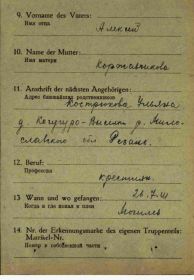 9. Vorname des Vaters:
Имя отца
Алексей
10. Name der Mutter:
Имя матери
Коржавчикова
11. Anschrift der nächsten Angehörigen:
Адрес ближайших родственников
Кострюкова Ульяна
д. р. Мило-
славского обл Рязанс.
12. Beruf:
Профессия
крестьянин
13 Wann und wo gefangen:
Когда и где попал в плен
26.7.41
Могилев
14. Nr. der Erkennungsmarke des eigenen Truppenteils:
Matrikel-Nr.
Номер в собственной части